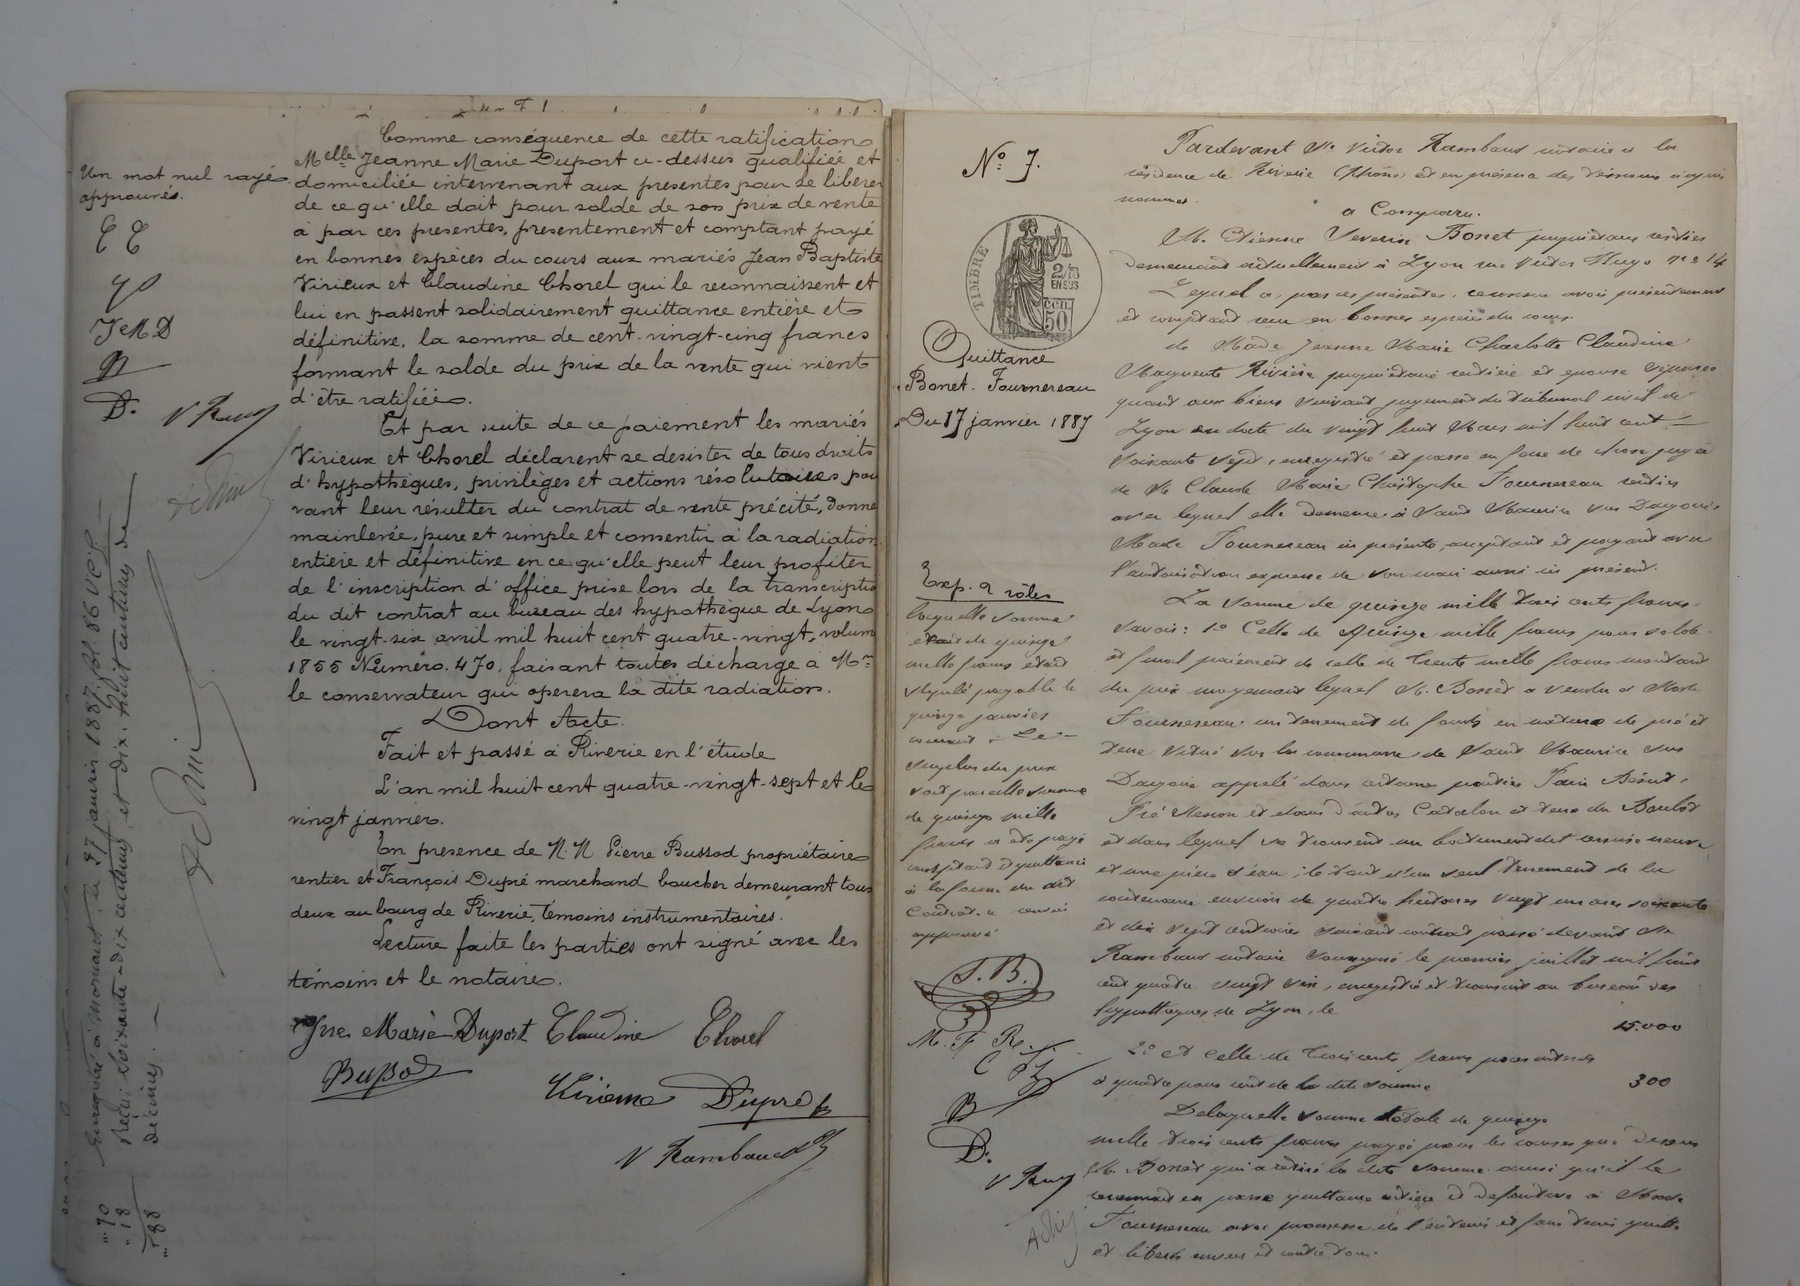 Comme conséquence de cette ratification
Melle Jeanne Marie Duport ci-dessus qualifiée et
domiciliée intervenant aux presentes pour se libérer
de ce qu'elle doit pour solde de son prix de vente
a par ces presentes, presentement et comptant payé
en bonnes espèces du cours aux mariés Jean Baptiste
Virieux et Claudine Chorel qui le reconnaissent et
lui en passent solidairement quittance entière et
définitive, la somme de cent-vingt-cinq francs
formant le solde du prix de la vente qui vient
d'être ratifiée.
Et par suite de ce paiement les mariés
Virieux et Chorel déclarent se desister de tous droits
d'hypothèques, privilèges et actions résolutoires pou
vant leur résulter du contrat de vente précité, donne
mainlevée, pure et simple et consentir à la radiation
entière et définitive en ce qu'elle peut leur profiter
de l'inscription d'office prise lors de la transcriptio
du dit contrat au bureau des hypothèque de Lyon
le vingt-six avril mil huit cent quatre-vingt, volum
1855 Numéro 470, faisant toutes décharge à Mr
le conservateur qui operera la dite radiation.
Dont Acte.
Fait et passé à Riverie en l'étude
L'an mil huit cent quatre-vingt-sept et le
vingt janvier.
En presence de M.M Pierre Bussod propriétaire
rentier et François Dupré marchand boucher demeurant tous
deux au bourg de Riverie, témoins instrumentaires.
Lecture faite les parties ont signé avec les
témoins et le notaire.
Jne Marie Duport Claudine Chorel
Bussod
Virieux Dupré
V Rambaud
Un mot nul rayé
approuvé.
C C
JeMD
B
D.
V Ramb
Enregistré à Mornant, le 27 janvier 1887, fol. 86
Reçu: soixante-dix centimes, et dix-huit centimes de
décimes.
"70
"18
"88
No 7.
TIMBRE
2/10
EN SUS
50
Quittance
Bonet. Fournereau
Du 17 janvier 1887
Exp. 2 rôles
Pardevant Me Victor Rambaud notaire à la
résidence de Riverie (Rhône) et en présence des témoins ci après
nommés.
a Comparu.
M. Etienne Severin Bonet propriétaire rentier
demeurant actuellement à Lyon rue Victor Hugo no 14
Lequel a, par ces présentes, reconnu avoir présentement
et comptant reçu en bonnes espèces du cours.
de Made Jeanne Marie Charlotte Claudine
Marguerite Rivière propriétaire rentière et épouse séparée
quant aux biens suivant jugement du tribunal civil de
Lyon en date du vingt huit Mars mil huit cent
soixante sept, enregistré et passé en force de chose jugée
de M. Claude Marie Christophe Fournereau rentier
avec lequel elle demeure à Saint Maurice sur Dargoire
Made Fournereau ici présente, acceptant et payant avec
l'autorisation expresse de son mari aussi ici présent.
La somme de quinze mille trois cents francs.
Savoir: 1o Celle de Quinze mille francs pour solde
et final paiement de celle de trente mille francs montant
du prix moyennant lequel M. Bonet a vendu à Made
Fournereau un tenement de fonds en nature de pré et
terre situé sur la commune de Saint Maurice sur
Dargoire appelé dans certaines parties
Pré Menon et dans d'autres Catalon et terre du Boulot
et dans lequel se trouvent un batiment de construction neuve
et une pièce d'eau; le tout d'un seul tenement de la
contenance environ de quatre hectares vingt un ares soixante
et dix sept centiares suivant contrat passé devant Me
Rambaud notaire soussigné le premier juillet mil huit
cent quatre vingt six, enregistré et transcrit au bureau des
hypothèques de Lyon, le
15.000
2o et celle de trois cents francs pour intérêts
à quatre pour cent de la dite somme
300
De laquelle somme totale de quinze
mille trois cents francs payée pour les causes que dessus
M. Bonet qui a retiré la dite somme ainsi qu'il le
reconnait en passe quittance entière et définitive à Made
Fournereau avec promesse de l'en tenir et faire tenir quitte
et libérée envers et contre tous.
laquelle somme
de quinze
mille francs était
stipulé payable le
quinze janvier
courant
surplus du prix
soit pareille somme
de quinze mille
francs a été payé
comptant et quittancé
à la forme du dit
Contrat. a renvoi
approuvé
S.B.
M. F R.
C F
B
D.
V Ramb